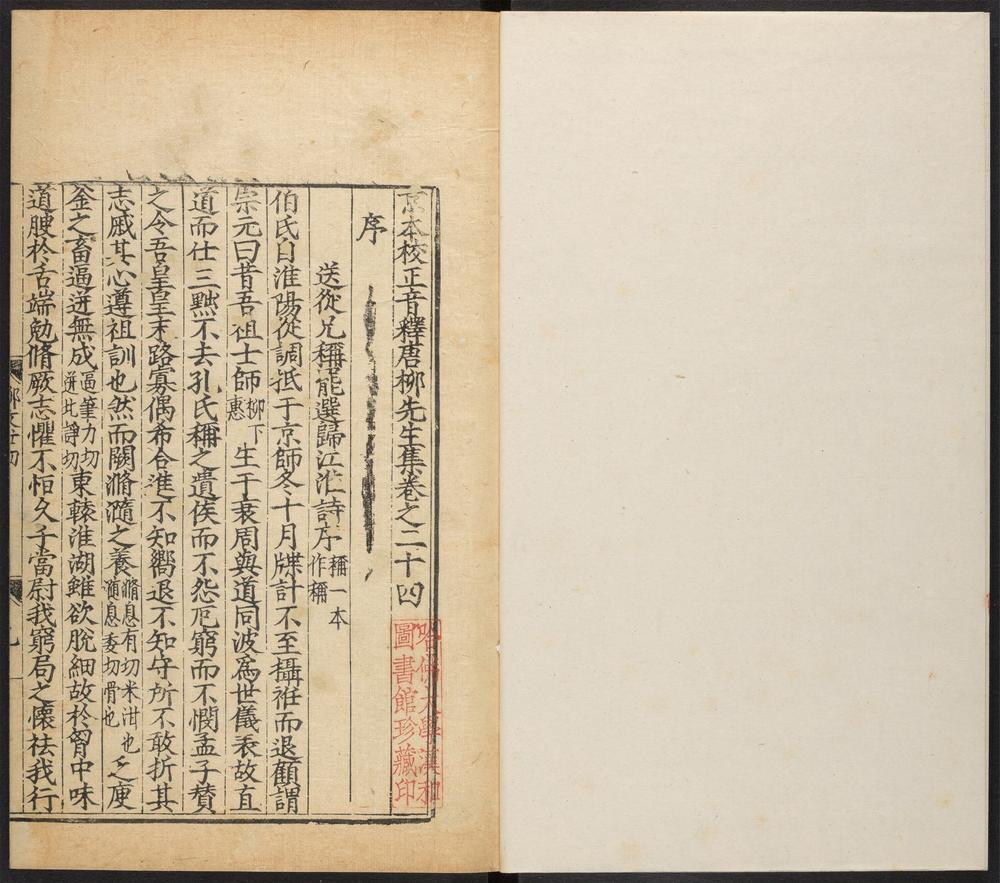 京本校正音釋唐柳先生集卷之二十四
哈佛大學漢和
圖書館珍藏印
序
送從兄稱罷選歸江淮詩序稱一本作稱
伯氏自淮陽從調抵于京師冬十月牒計不至攝袵而退顧謂
崇元曰昔吾祖士師柳下惠生于衰周與道同波爲世儀表故直
道而仕三黜不去孔氏稱之遺佚而不怨厄窮而不憫孟子賛
之今吾皇皇末路寡偶希合進不知嚮退不知守所不敢折其
志慼其心遵祖訓也然而闕滫瀡之養滫息有切米泔也瀡息委切骨也乏庾
釜之畜逼迸無成逼筆力切迸北諍切東轅淮湖雖欲脫細故於胷中味
道腴於舌端勉脩厥志懼不恒久子當尉我窮局之懷祛我行